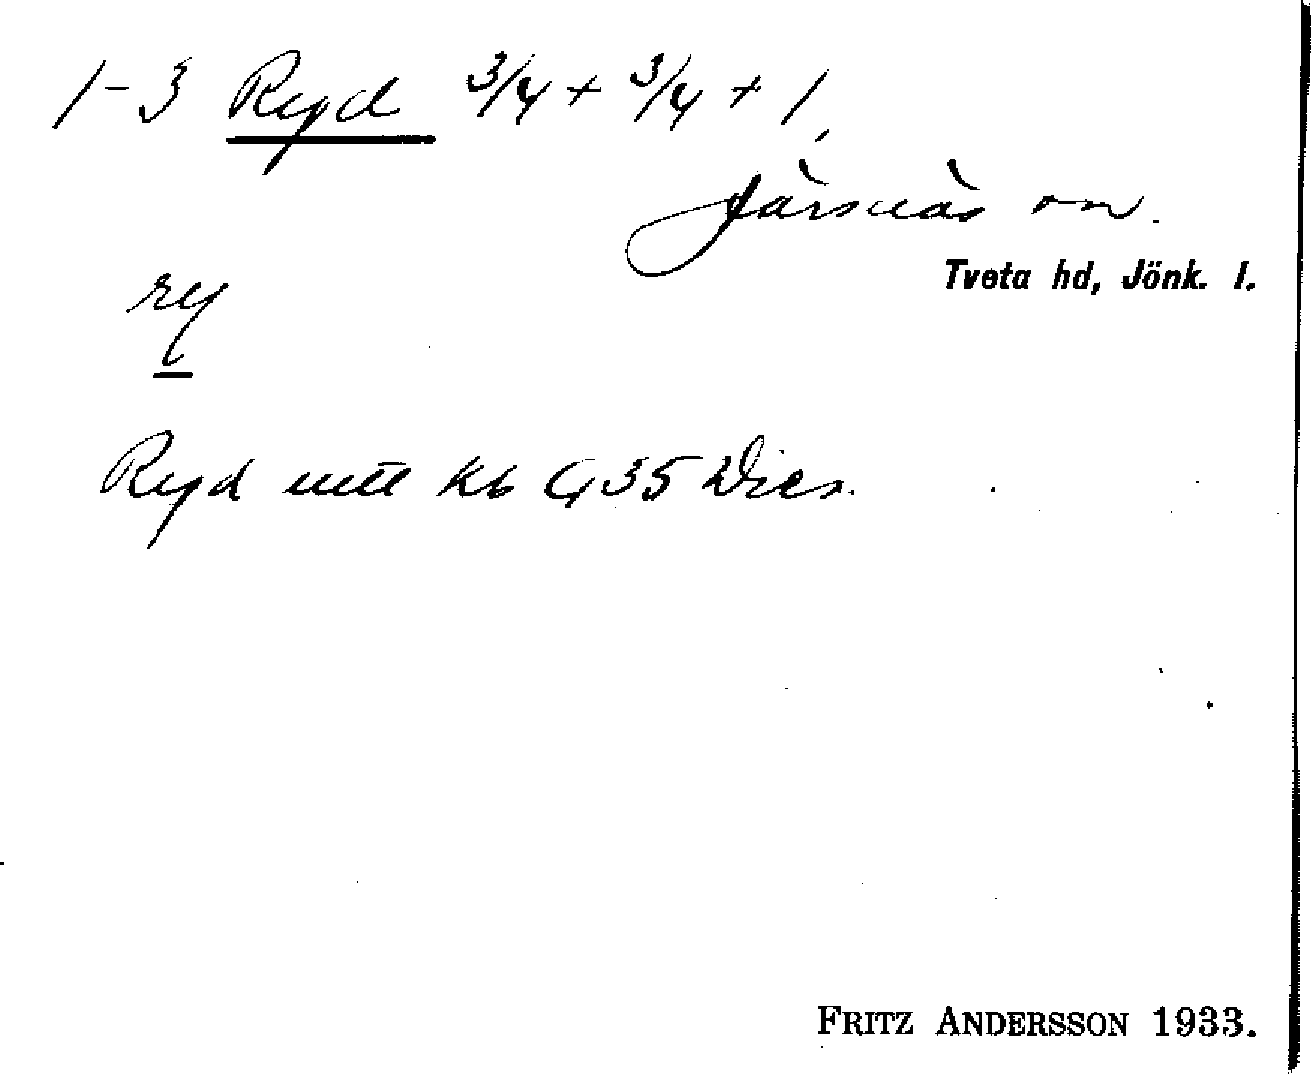 1-3 Ryd 3/4 + 3/4 + 1,
Järsnäs sn.
Tveta hd, Jönk. l.
ry
Ryd utt kb G 35 Dics.
FRITZ ANDERSSON 1933.